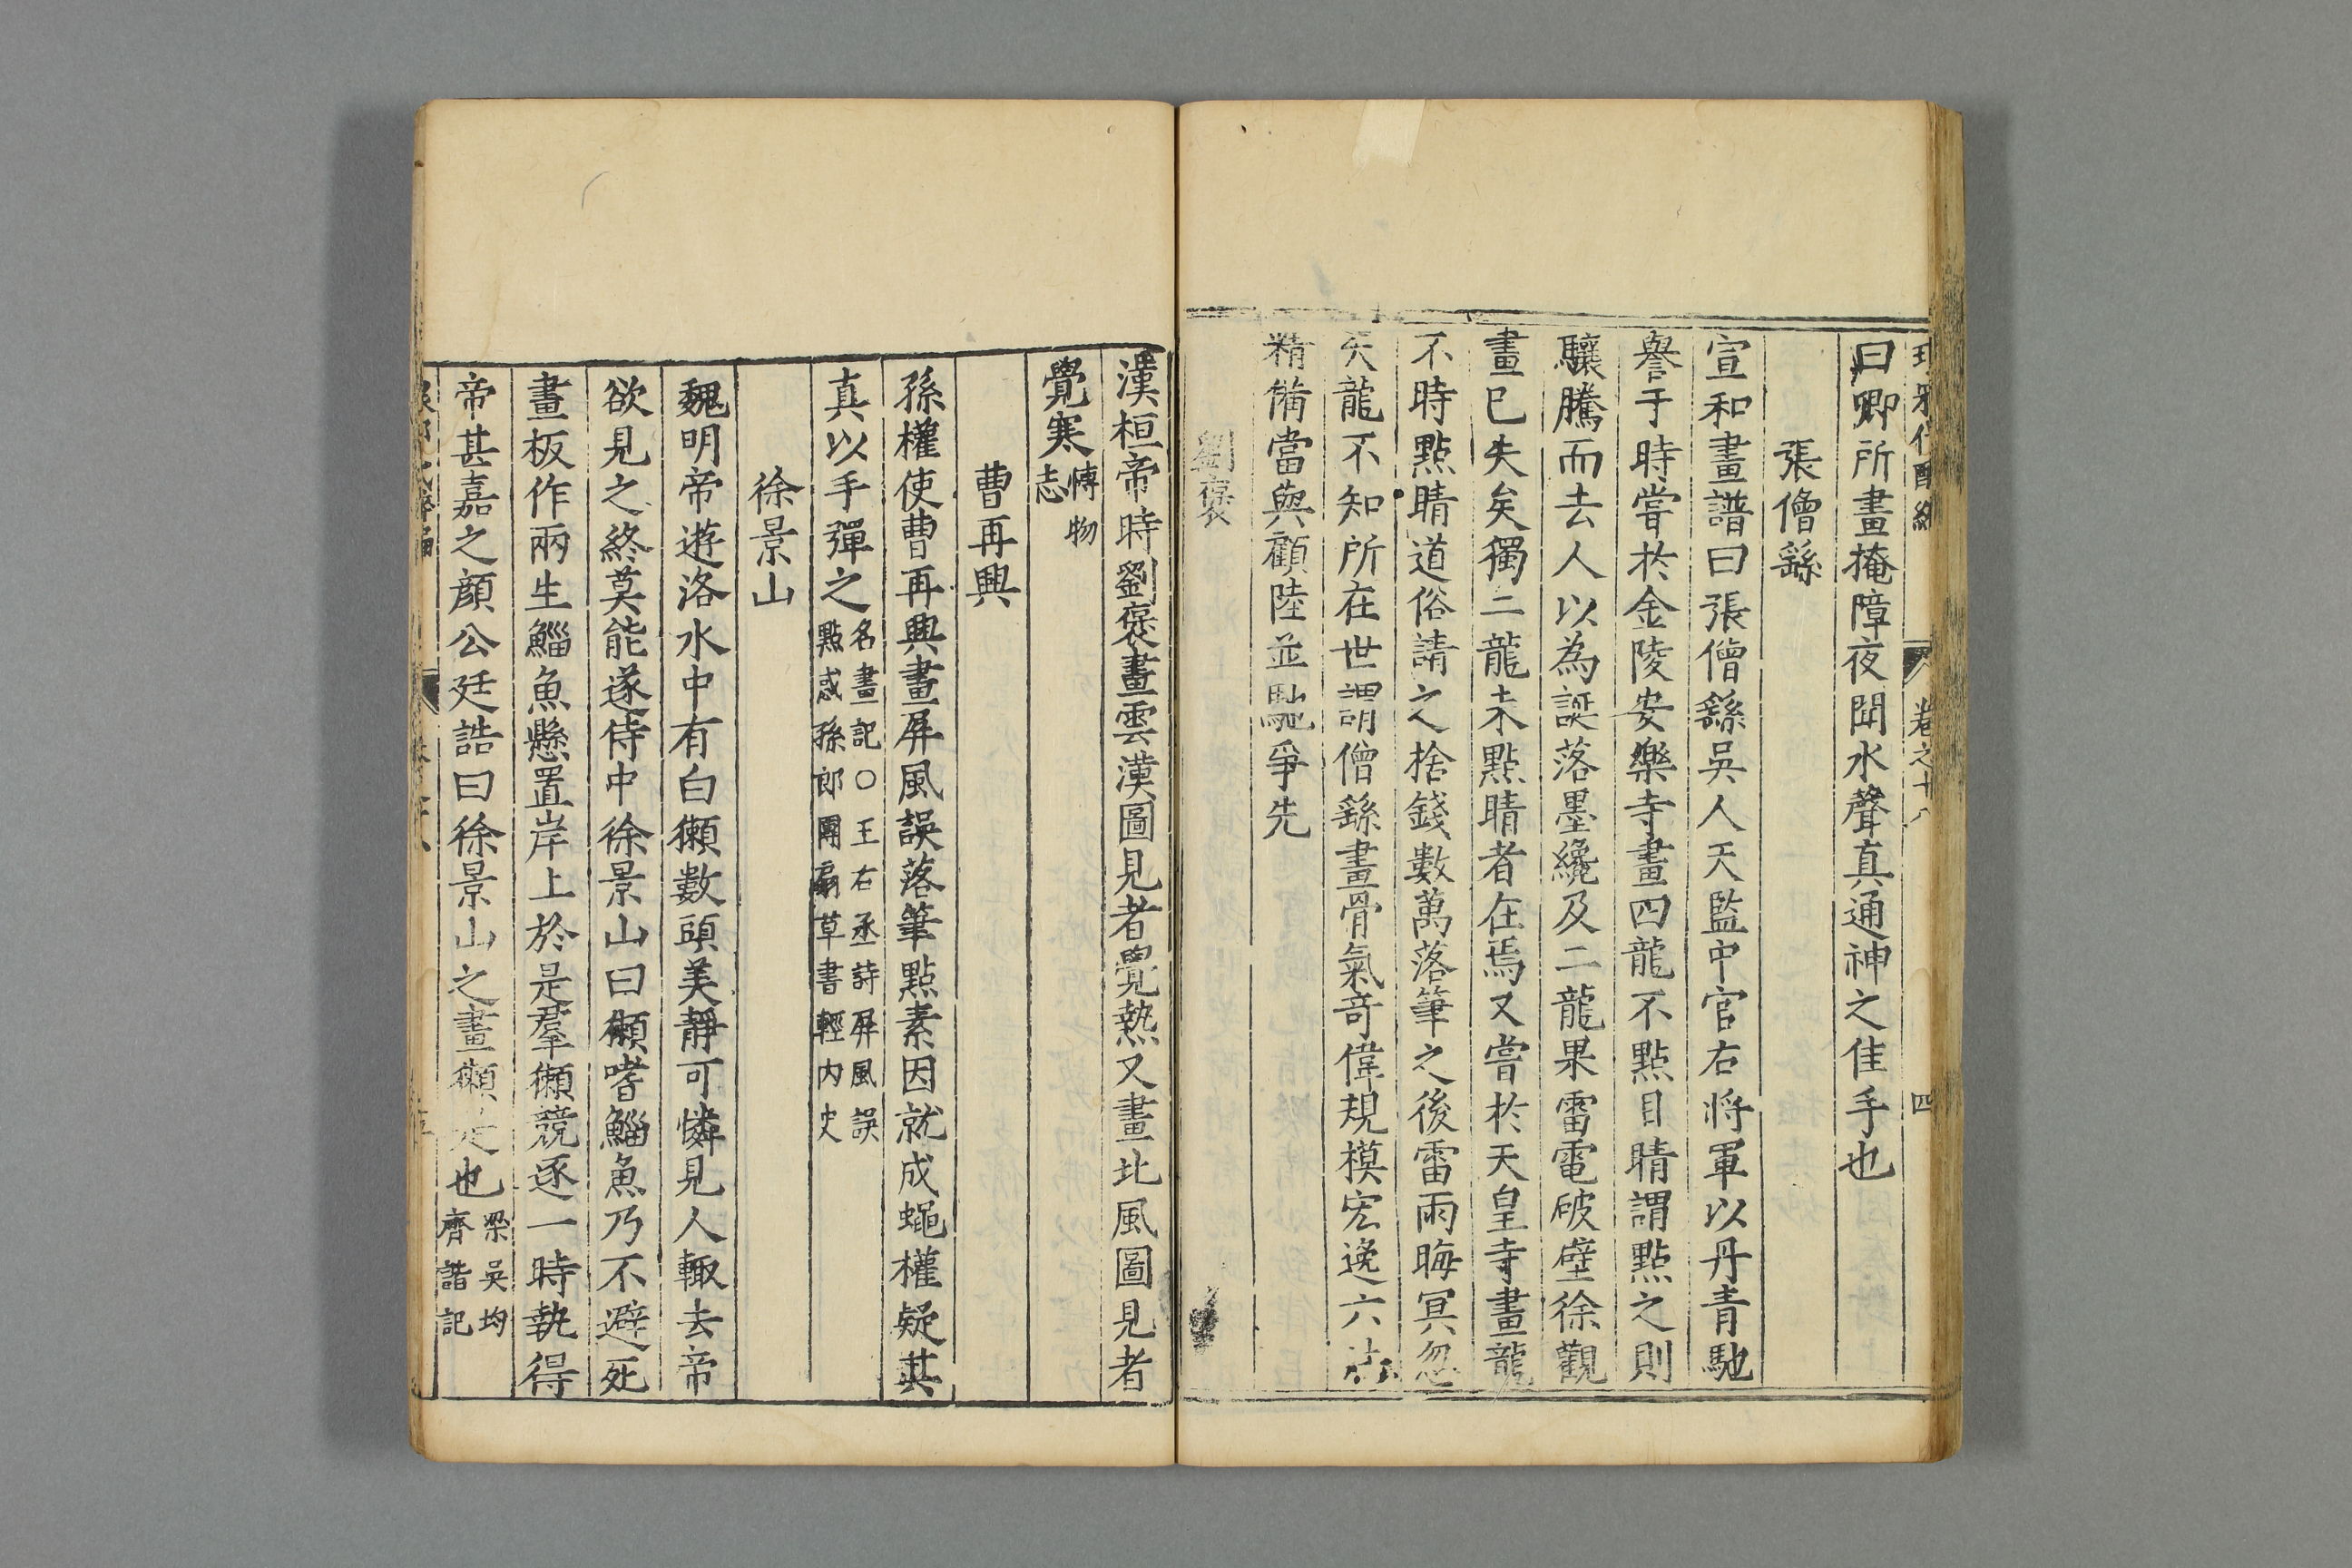 曰卿所畫掩障夜聞水聲真通神之佳手也
張僧繇
宣和畫譜曰張僧繇吳人天監中官右將軍以丹青馳
譽于時嘗於金陵安樂寺畫四龍不點目睛謂點之則
驤騰而去人以為誕落墨纔及二龍果雷電破壁徐觀
畫已失矣獨二龍未點睛者在焉又嘗於天皇寺畫龍
不時點睛道俗請之捨錢數萬落筆之後雷雨晦冥忽
失龍不知所在世謂僧繇畫骨氣奇偉規模宏逸六法
精備當與顧陸並馳爭先
劉褒
漢桓帝時劉褒畫雲漢圖見者覺熱又畫北風圖見者
覺寒博物志
曹再興
孫權使曹再興畫屏風誤落筆點素因就成蠅權疑其
真以手彈之名畫記○王右丞詩屏風誤點惑孫郎團扇草書輕內史
徐景山
魏明帝遊洛水中有白獺數頭美靜可憐見人輒去帝
欲見之終莫能遂侍中徐景山曰獺嗜鯔魚乃不避死
畫板作兩生鯔魚懸置岸上於是羣獺競逐一時執得
帝甚嘉之顏公廷誥曰徐景山之畫獺是也梁吳均齊諧記
卷之十八
四